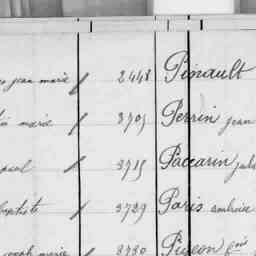 jean marie / 2448 Pinault
marie / 3705 Perrin jean
paul / 3715 Paccarin jule
baptiste / 3729 Paris ambroise
joseph marie / 3730 Pigeon